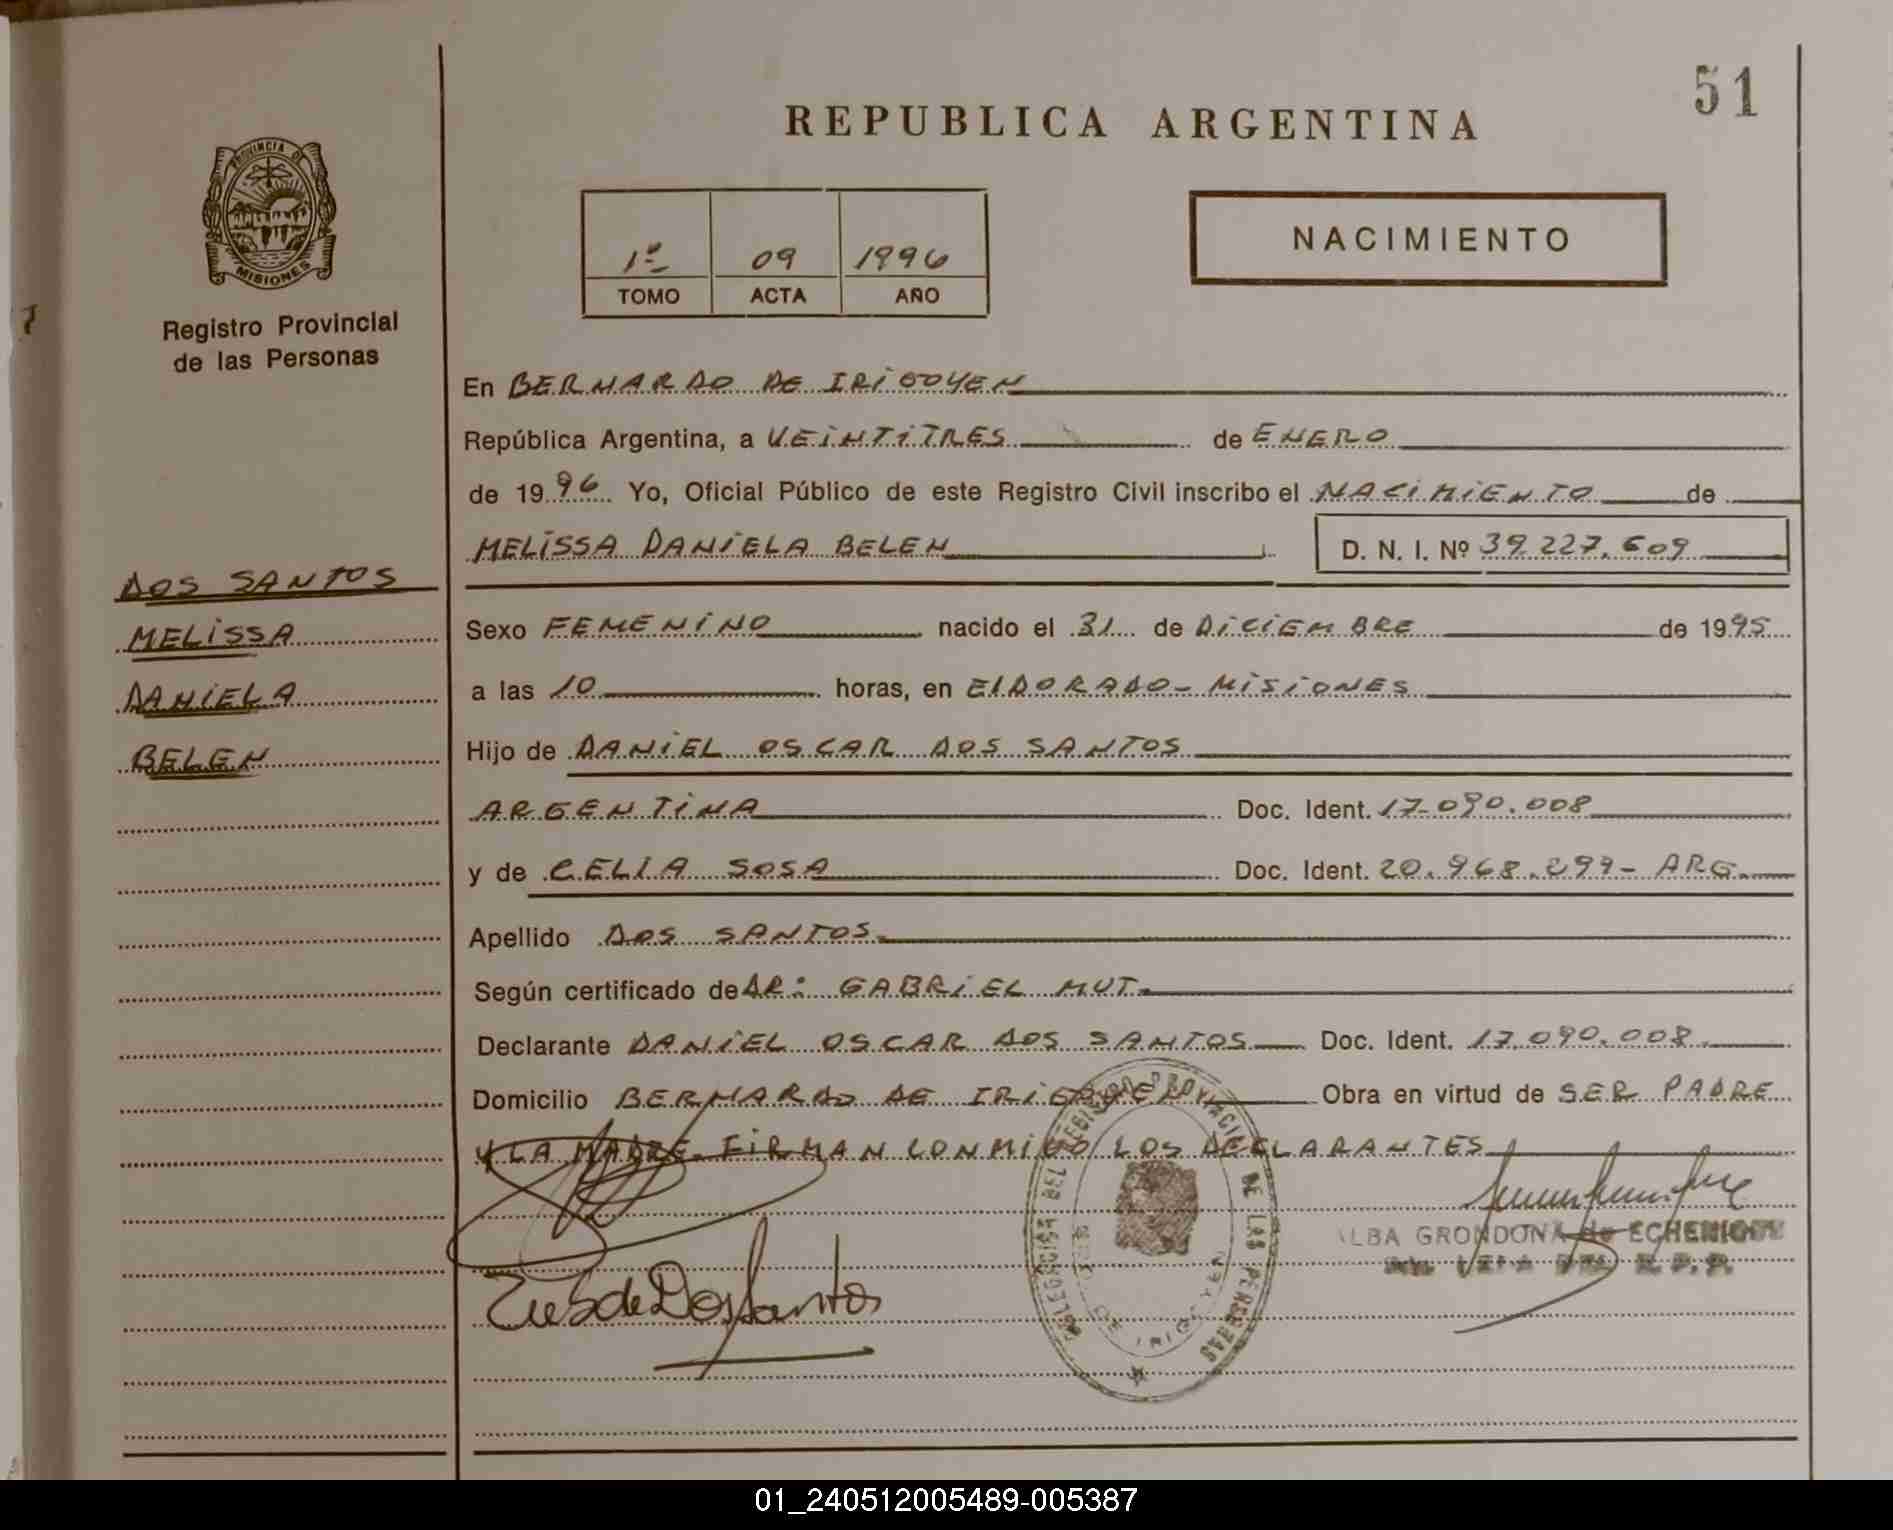 51
REPUBLICA ARGENTINA
PROVINCIA DE
MISIONES
Registro Provincial
de las Personas
1º 09 1996
TOMO ACTA AÑO
NACIMIENTO
En BERNARDO DE IRIGOYEN
República Argentina, a VEINTITRES de ENERO
de 1996 Yo, Oficial Público de este Registro Civil inscribo el NACIMIENTO de
MELISSA DANIELA BELEN D. N. I. Nº 39.227.609
DOS SANTOS
MELISSA
DANIELA
BELEN
Sexo FEMENINO nacido el 31 de DICIEMBRE de 1995
a las 10 horas, en ElDORADO - MISIONES
Hijo de DANIEL OSCAR DOS SANTOS
ARGENTINA Doc. Ident. 17.090.008
y de CELIA SOSA Doc. Ident. 20.968.299 - ARG.
Apellido DOS SANTOS.
Según certificado de DR: GABRIEL MUT.
Declarante DANIEL OSCAR DOS SANTOS Doc. Ident. 17.090.008.
Domicilio BERNARDO DE IRIGOYEN Obra en virtud de SER PADRE
Y LA MADRE. FIRMAN CONMIGO LOS DECLARANTES
DELEGACION DEL REGISTRO PROVINCIAL DE LAS PERSONAS
DE IRIGOYEN
ALBA GRONDONA de ECHENIQUE
de Dos Santos
01_240512005489-005387